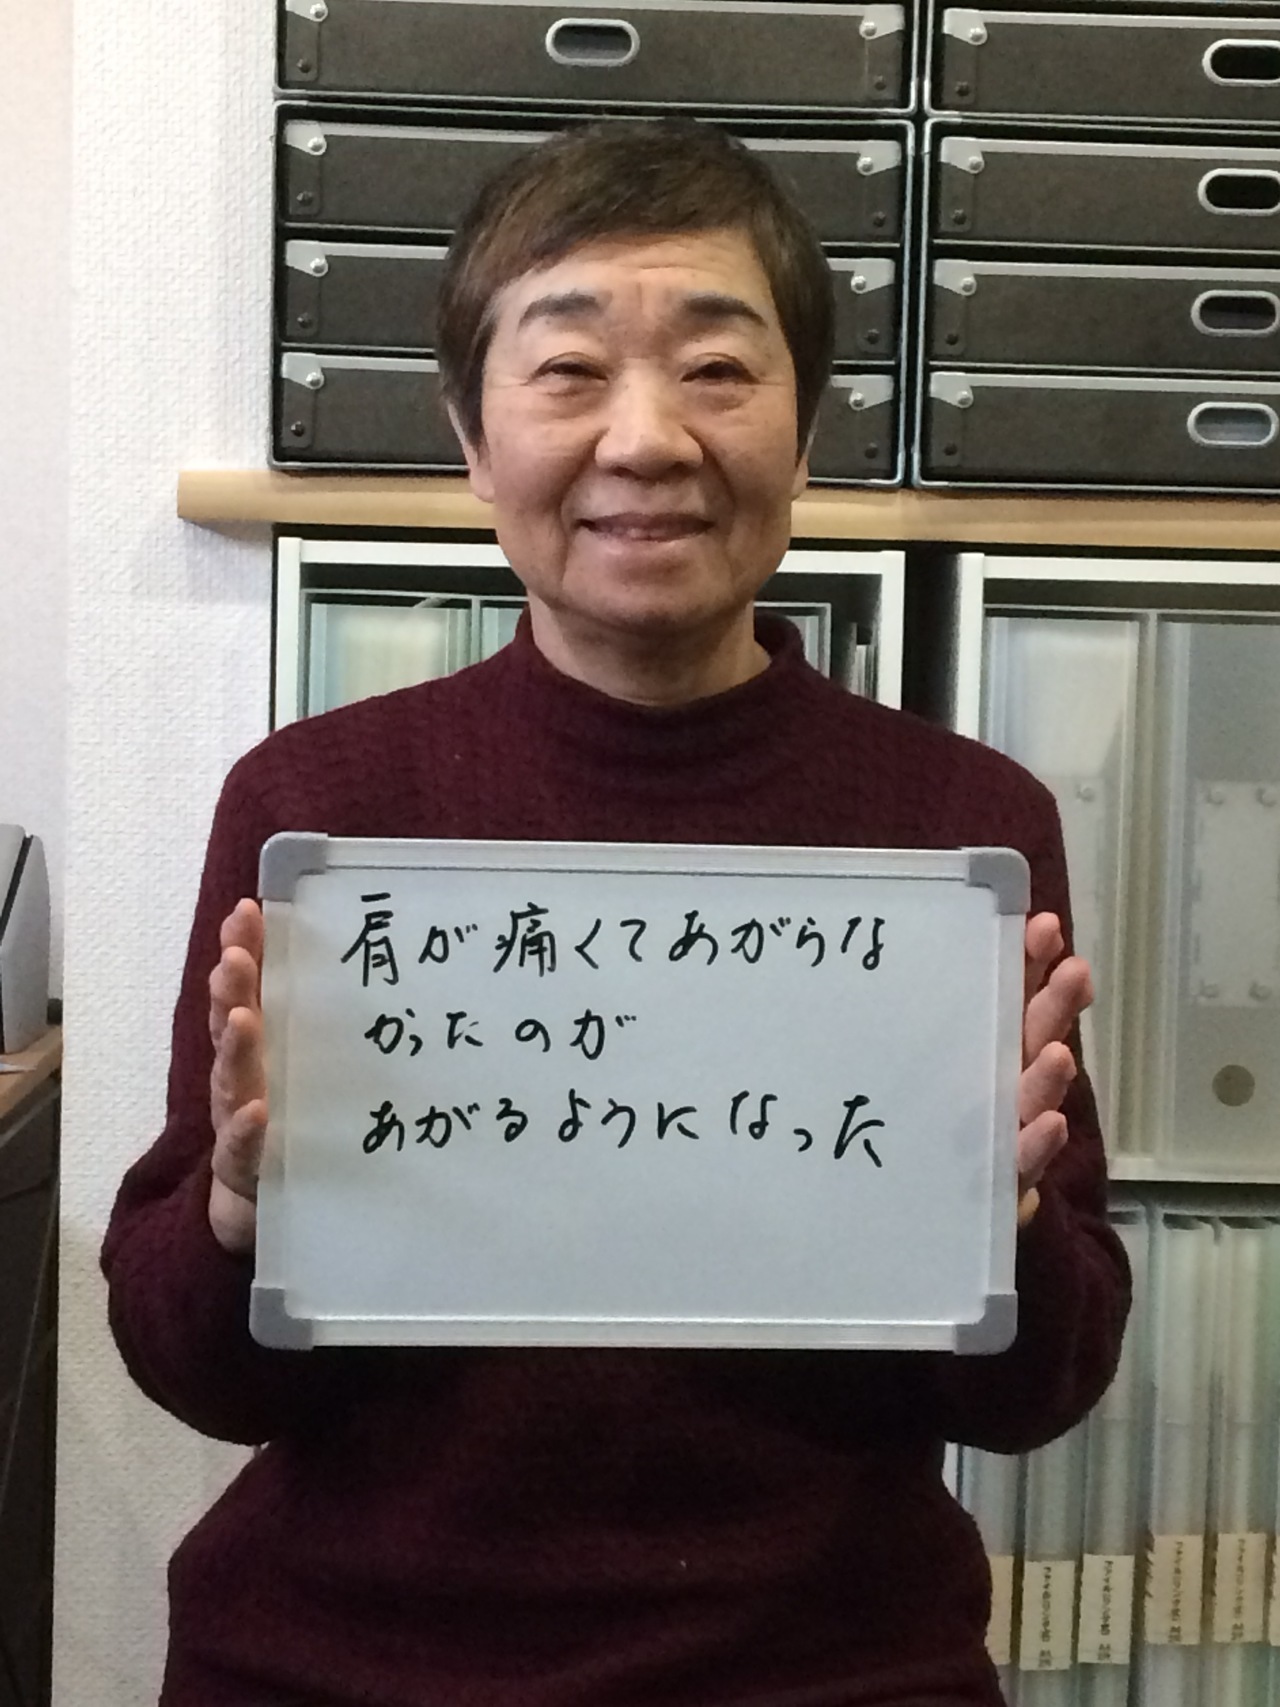 肩が痛くてあがらな
かったのが
あがるようになった